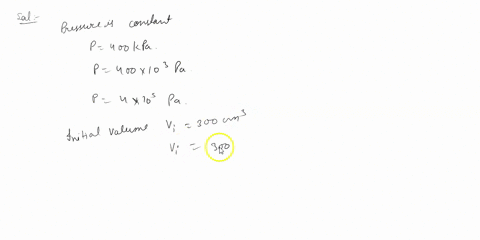 Sol:-
Pressure is constant
P = 400 kPa.
P = 400 × 10³ Pa
P = 4 × 10⁵ Pa.
Initial volume Vᵢ = 300 cm³
Vᵢ = 300